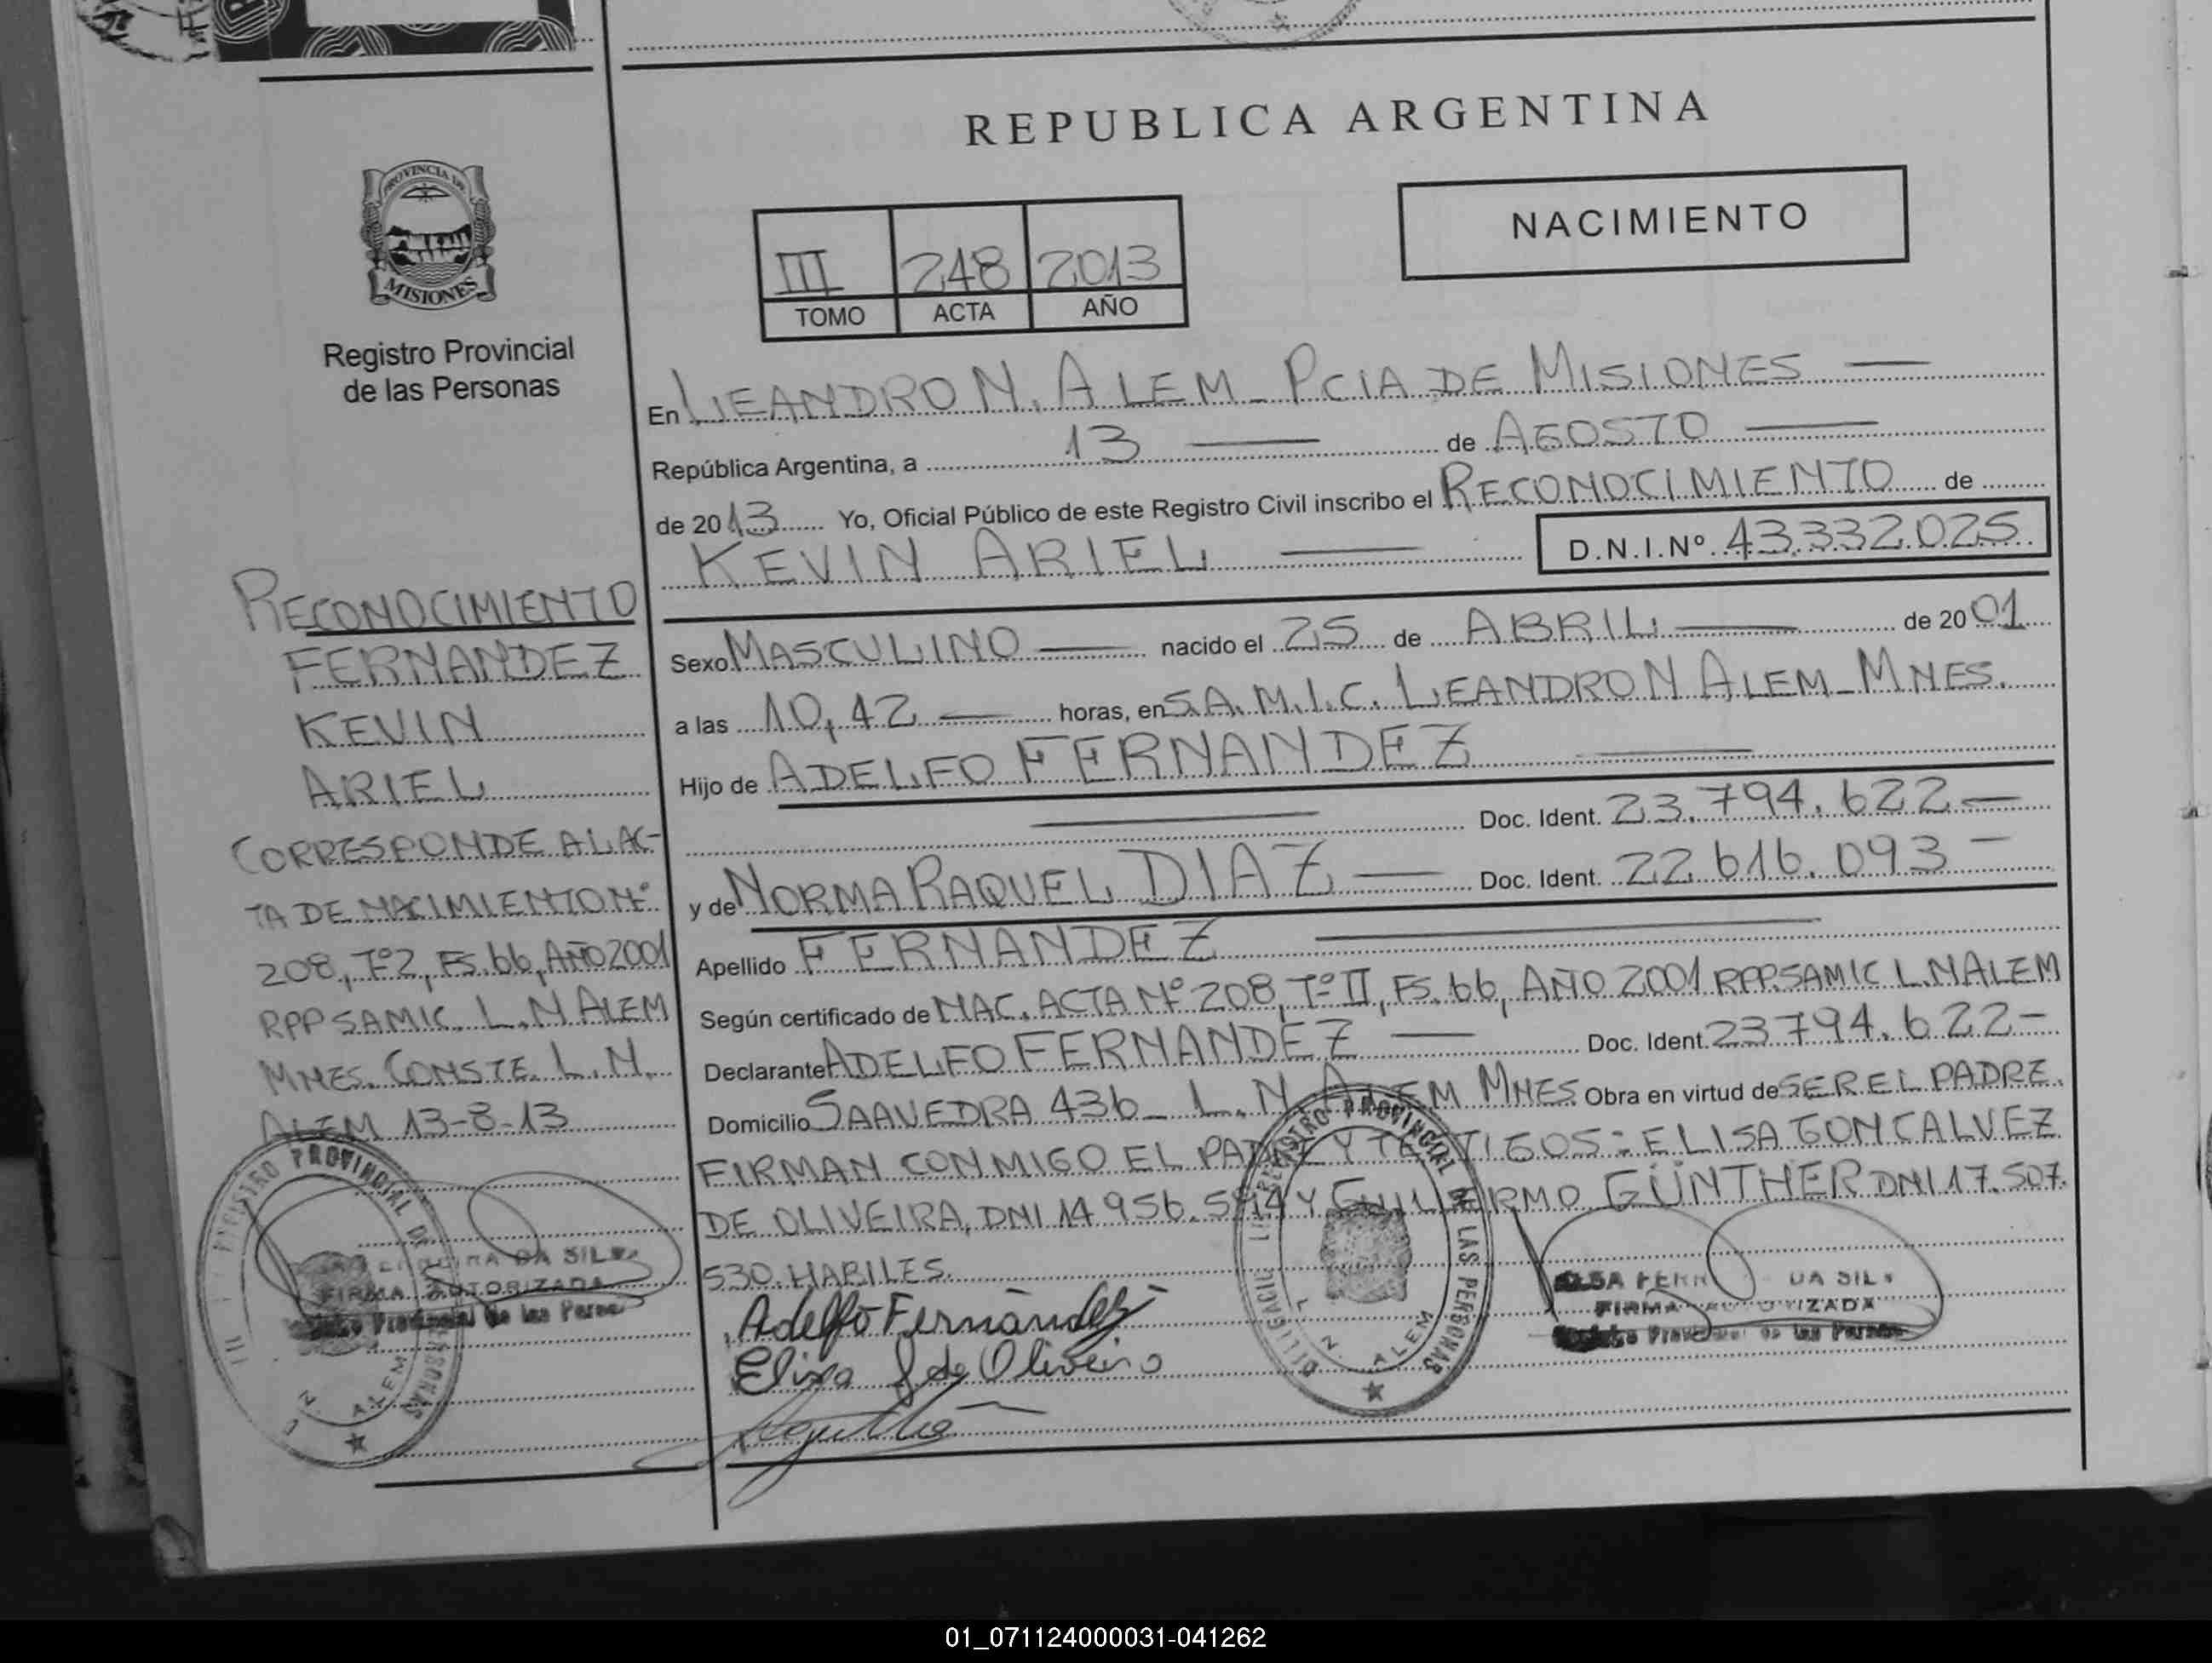 REPUBLICA ARGENTINA
PROVINCIA DE
MISIONES
Registro Provincial
de las Personas
NACIMIENTO
III 248 2013
TOMO ACTA AÑO
En LEANDRO N. ALEM - PCIA DE MISIONES
República Argentina, a 13 de AGOSTO
de 2013 Yo, Oficial Público de este Registro Civil inscribo el RECONOCIMIENTO de
KEVIN ARIEL D.N.I.Nº 43.332.025
Sexo MASCULINO nacido el 25 de ABRIL de 2001
a las 10,42 horas, en S.A.M.I.C. LEANDRO N ALEM - MNES.
Hijo de ADELFO FERNANDEZ
Doc. Ident. 23.794.622
y de NORMA RAQUEL DIAZ Doc. Ident. 22.616.093
Apellido FERNANDEZ
Según certificado de NAC. ACTA Nº 208, Tº II, FS. 66, AÑO 2001 RPP. SAMIC L.N ALEM
Declarante ADELFO FERNANDEZ Doc. Ident. 23.794.622
Domicilio SAAVEDRA 436 - L.N. ALEM MNES. Obra en virtud de SER EL PADRE.
FIRMAN CONMIGO EL PADRE Y TESTIGOS: ELISA GONCALVEZ
DE OLIVEIRA, DNI 14.956.594 Y GUILLERMO GÜNTHER DNI 17.507.
530. HABILES.
Adelfo Fernández
Elisa g de Oliveira
RECONOCIMIENTO
FERNANDEZ
KEVIN
ARIEL
CORRESPONDE A LA AC-
TA DE NACIMIENTO Nº
208, Tº 2, FS. 66, AÑO 2001
RPP SAMIC. L.N ALEM
MNES. CONSTE. L.N.
ALEM 13-8-13
REGISTRO PROVINCIAL DE LAS PERSONAS
L. N. ALEM
DA SIL
FIRMA AUTORIZADA
Provincial de las Perso
REGISTRO PROVINCIAL DE LAS PERSONAS
L. N. ALEM
DA SIL
FIRMA AUTORIZADA
01_071124000031-041262